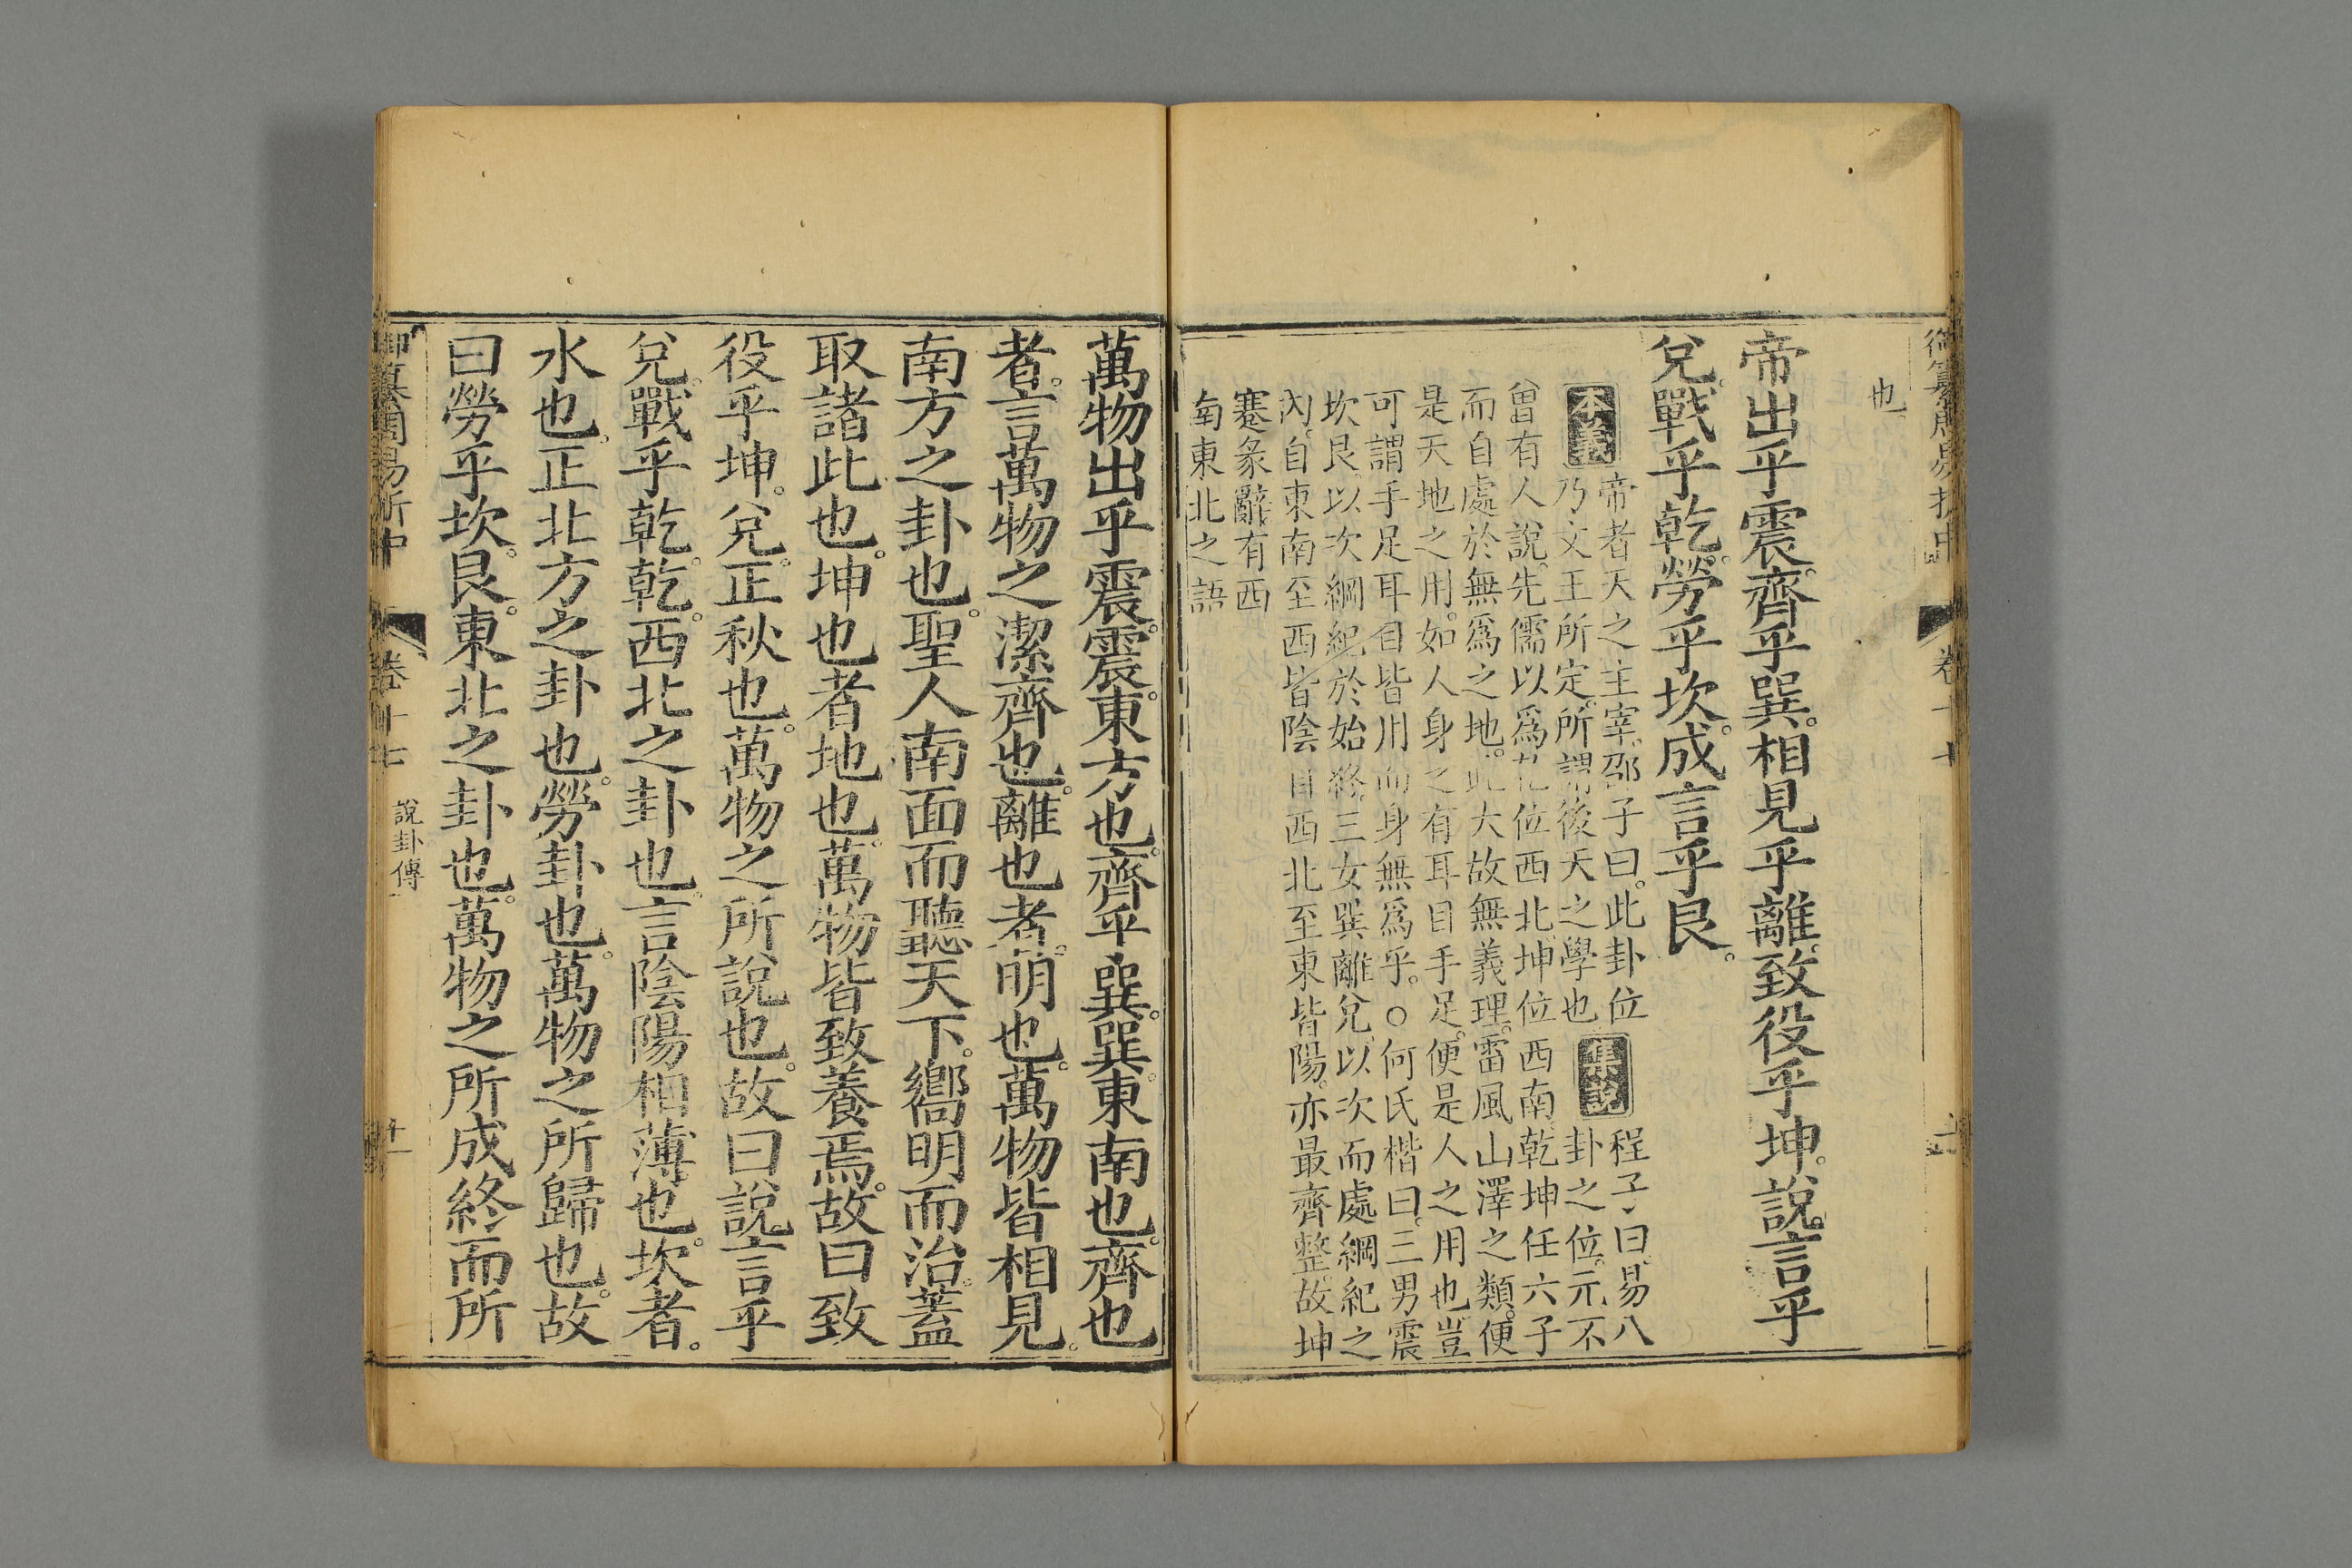 御纂周易折中 卷十七
也。
帝出乎震。齊乎巽。相見乎離。致役乎坤。說言乎
兌。戰乎乾。勞乎坎。成言乎艮。
本義 帝者天之主宰。邵子曰。此卦位
乃文王所定。所謂後天之學也
集說 程子曰。易八
卦之位。元不
曾有人說。先儒以爲乾位西北。坤位西南。乾坤任六子
而自處於無爲之地。此大故無義理。雷風山澤之類。便
是天地之用。如人身之有耳目手足。便是人之用也。豈
可謂手足耳目皆用而身無爲乎。○何氏楷曰。三男震
坎艮。以次綱紀於始終。三女巽離兌。以次而處綱紀之
內。自東南至西皆陰。自西北至東皆陽。亦最齊整。故坤
蹇彖辭有西
南東北之語
萬物出乎震。震。東方也。齊乎巽。巽。東南也。齊也
者。言萬物之潔齊也。離也者。明也。萬物皆相見。
南方之卦也。聖人南面而聽天下。嚮明而治。蓋
取諸此也。坤也者地也。萬物皆致養焉。故曰致
役乎坤。兌。正秋也。萬物之所說也。故曰說言乎
兌。戰乎乾。乾。西北之卦也。言陰陽相薄也。坎者。
水也。正北方之卦也。勞卦也。萬物之所歸也。故
曰勞乎坎。艮。東北之卦也。萬物之所成終而所
御纂周易折中 卷十七 說卦傳